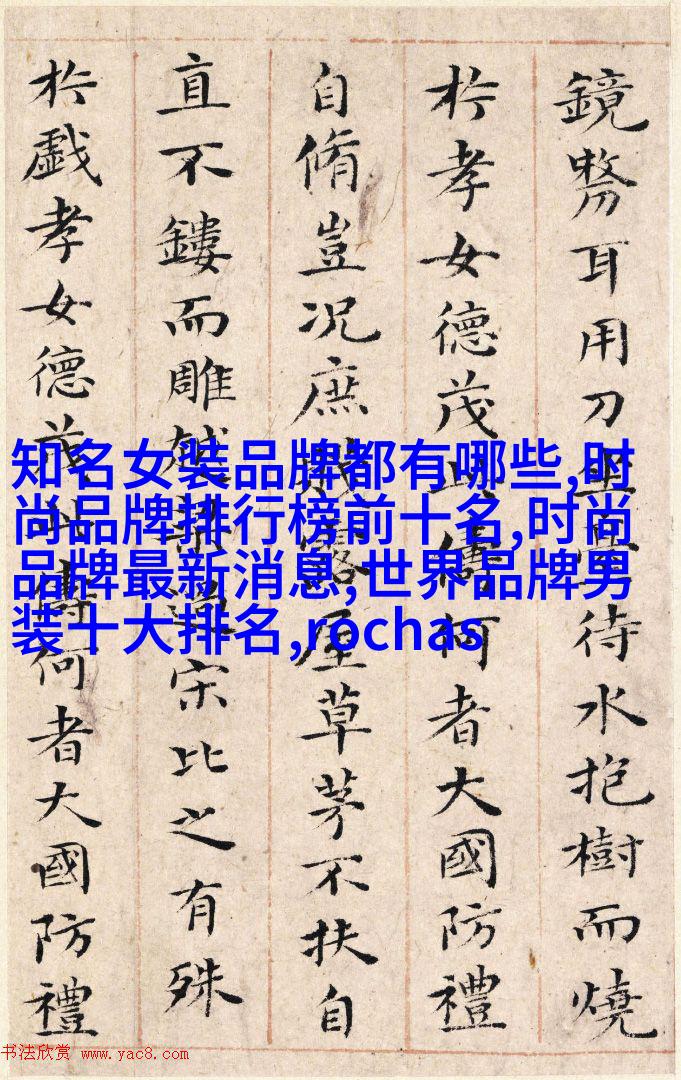 鏡剺耳用刀坐臺待水抱樹而燒
於孝女德茂此儔何者大國防禮
自脩豈况庶賤露屋草茅不扶自
直不鏤而雕越梁過宋比之有殊
於戲孝女德茂此儔何者大國防禮
知名女装品牌都有哪些,时
尚品牌排行榜前十名,时尚
品牌最新消息,世界品牌男
装十大排名,rochas
书法欣赏 www.yac8.com